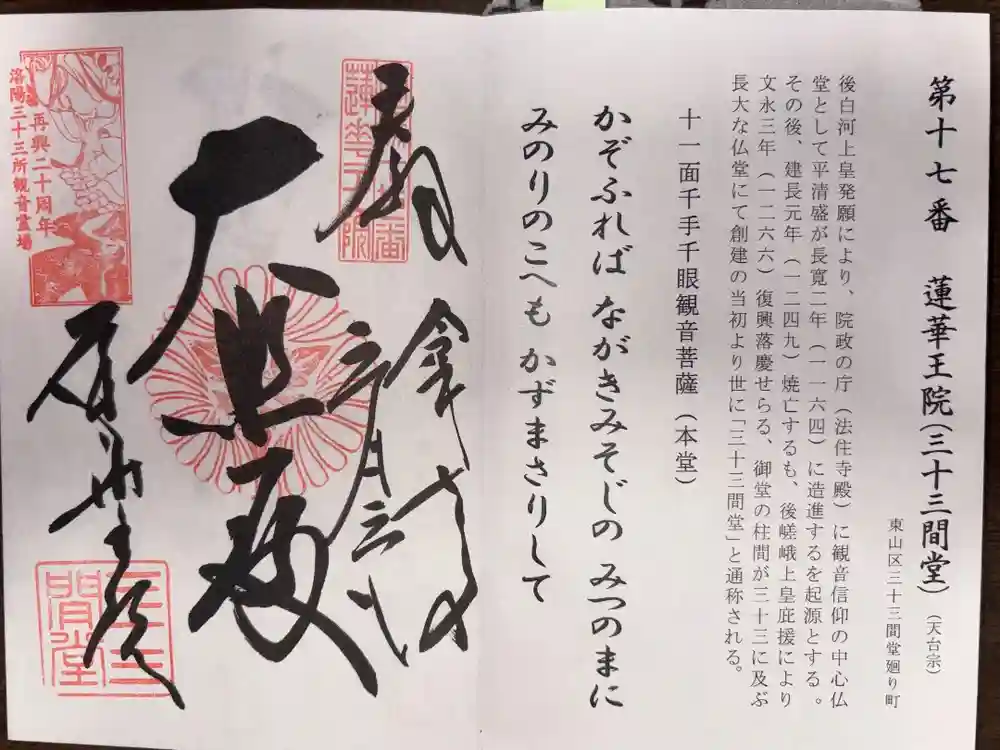 第十七番　蓮華王院（三十三間堂）（天台宗）
東山区三十三間堂廻り町
後白河上皇発願により、院政の庁（法住寺殿）に観音信仰の中心仏
堂として平清盛が長寛二年（一一六四）に造進するを起源とする。
その後、建長元年（一二四九）焼亡するも、後嵯峨上皇庇援により
文永三年（一二六六）復興落慶せらる、御堂の柱間が三十三に及ぶ
長大な仏堂にて創建の当初より世に「三十三間堂」と通称される。
十一面千手千眼観音菩薩（本堂）
かぞふれば ながきみそじの みつのまに
みのりのこへも かずまさりして
奉拝
大悲殿
三十三間堂
再興二十周年
洛陽三十三所観音霊場